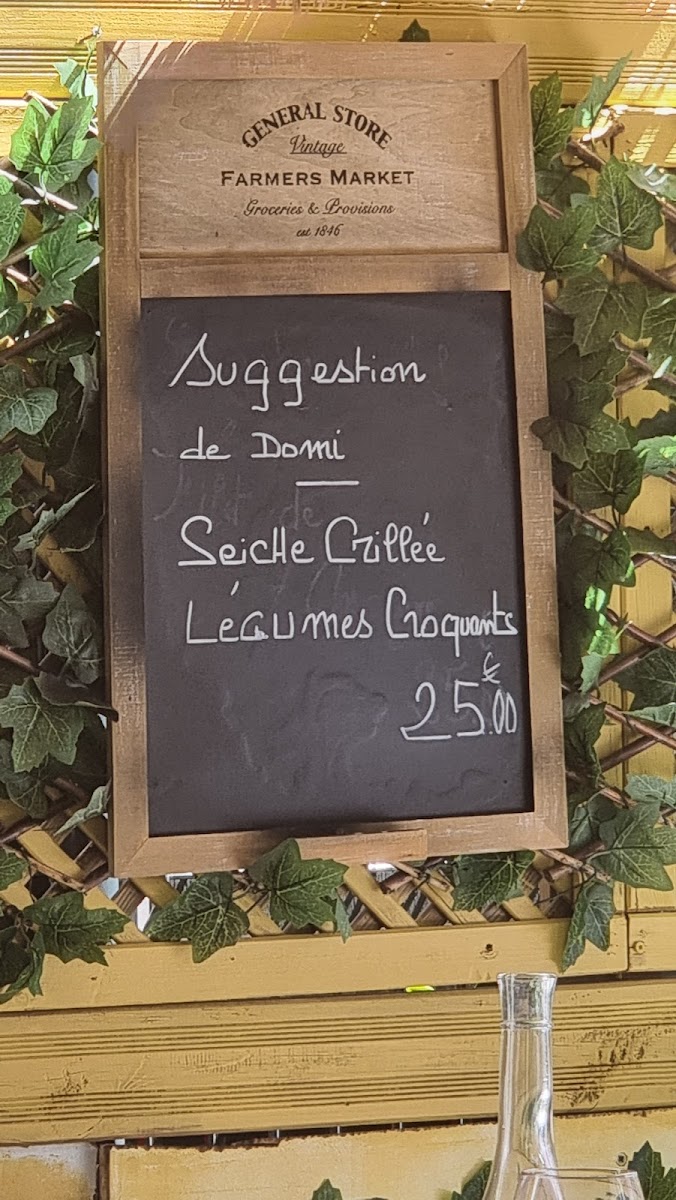 GENERAL STORE
Vintage
FARMERS MARKET
Groceries & Provisions
est 1846
Suggestion
de Domi
Seiche Grillée
Légumes Croquants
25.00 €